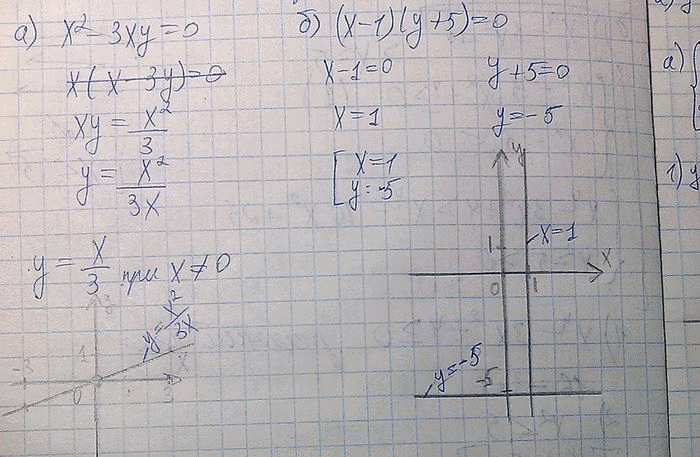 а) x² - 3xy = 0
x(x - 3y) = 0
xy = x²/3
y = x²/3x
y = x/3 при x ≠ 0
y
1
y = x²/3x
x
-3
0
3
б) (x-1)(y+5) = 0
x-1=0 y+5=0
x=1 y=-5
[ x=1
y=-5
y
x=1
1
x
0 1
y=-5
-5
а) {
1) y